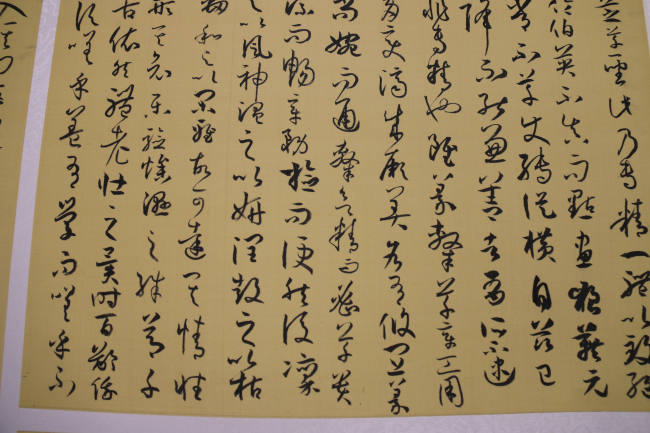 芝草聖此乃專精一體以致絕
倫伯英不真而點畫狼藉元
常不草使轉縱橫自茲已
降不能兼善者有所不逮
非專精也雖篆隸草章工用
多變濟成厥美各有攸宜篆
尚婉而通隸欲精而密草貴
流而暢章務檢而便然後凜
之以風神溫之以妍潤鼓之以枯
勁和之以閑雅故可達其情性
形其哀樂驗燥濕之殊節千
古依然體老壯之異時百齡俄
頃嗟乎蓋有學而嗟乎不
入其門